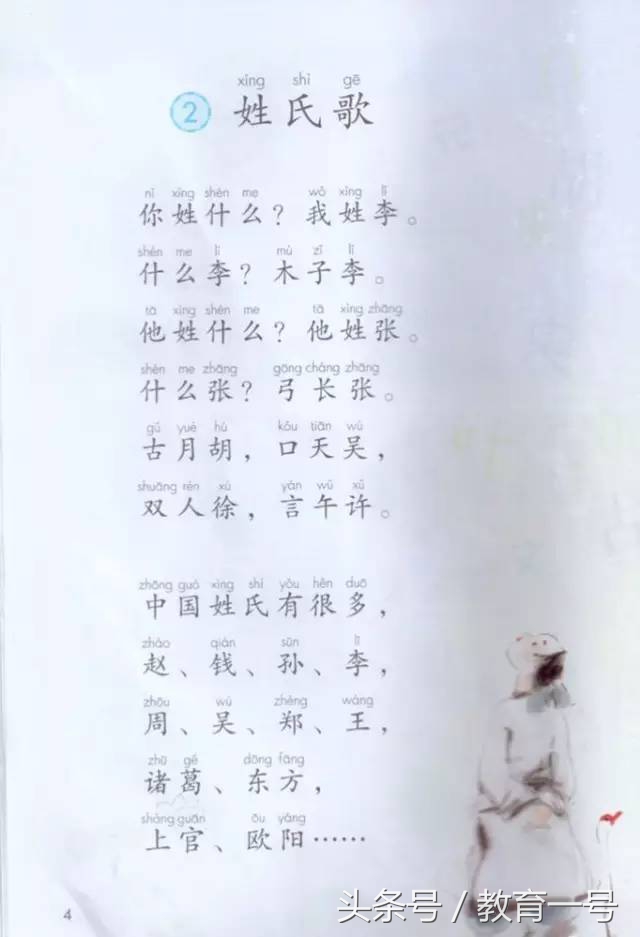 xìng shì gē
2 姓氏歌
nǐ xìng shén me wǒ xìng lǐ
你姓什么？我姓李。
shén me lǐ mù zǐ lǐ
什么李？木子李。
tā xìng shén me tā xìng zhāng
他姓什么？他姓张。
shén me zhāng gōng cháng zhāng
什么张？弓长张。
gǔ yuè hú kǒu tiān wú
古月胡，口天吴，
shuāng rén xú yán wǔ xǔ
双人徐，言午许。
zhōng guó xìng shì yǒu hěn duō
中国姓氏有很多，
zhào qián sūn lǐ
赵、钱、孙、李，
zhōu wú zhèng wáng
周、吴、郑、王，
zhū gě dōng fāng
诸葛、东方，
shàng guān ōu yáng
上官、欧阳……
4
头条号 / 教育一号